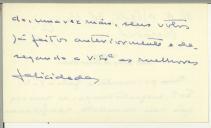 do, uma vez mais, seus votos
já feitos anteriormente e de-
sejando a V. Sª as melhores
felicidades